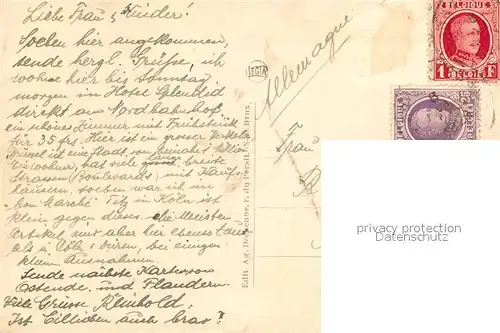 Liebe Frau & Kinder!
Soeben hier angekommen
sende herzl. Grüsse, ich
wohne hier bis Sonntag
morgen in Hotel Splendid
direkt am Nordbahnhof,
ein schönes Zimmer mit Frühstück
für 35 frs. Hier ist ein grosser Verkehr
Brüssel ist eine Stadt von beinahe 1 Million
Einwohner, hat viele breite
Strassen (Boulevards) mit Kauf-
häusern, soeben war ich im
bon Marché Titz in Köln ist
klein gegen dieses. die Meisten
Artikel nur aber ebenso
als in Cöln & Düren, bei einigen
klein Ausnahmen.
Sende nächste Karten von
Ostende und Flandern.
Viele Grüsse Reinhold.
Ist Cillichen auch brav?
LEGIA
Edit Ag. Decrenne, r. du Persil, Brux.
Allemagne
Frau
BELGIQUE
1 F
BELGIË
BELGIQUE
15
privacy protection
Datenschutz